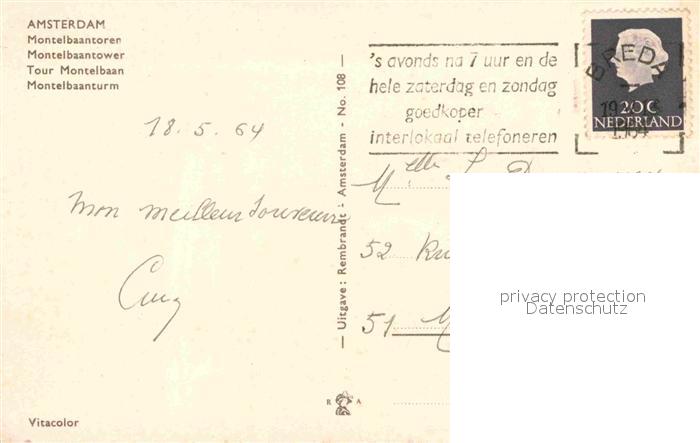 AMSTERDAM
Montelbaantoren
Montelbaantower
Tour Montelbaan
Montelbaanturm
18.5.64
mon meilleur souvenir
Vitacolor
— Uitgave: Rembrandt - Amsterdam - No. 108 —
R A
's avonds na 7 uur en de
hele zaterdag en zondag
goedkoper
interlokaal telefoneren
BREDA
20C
NEDERLAND
Melle
52
51
privacy protection
Datenschutz